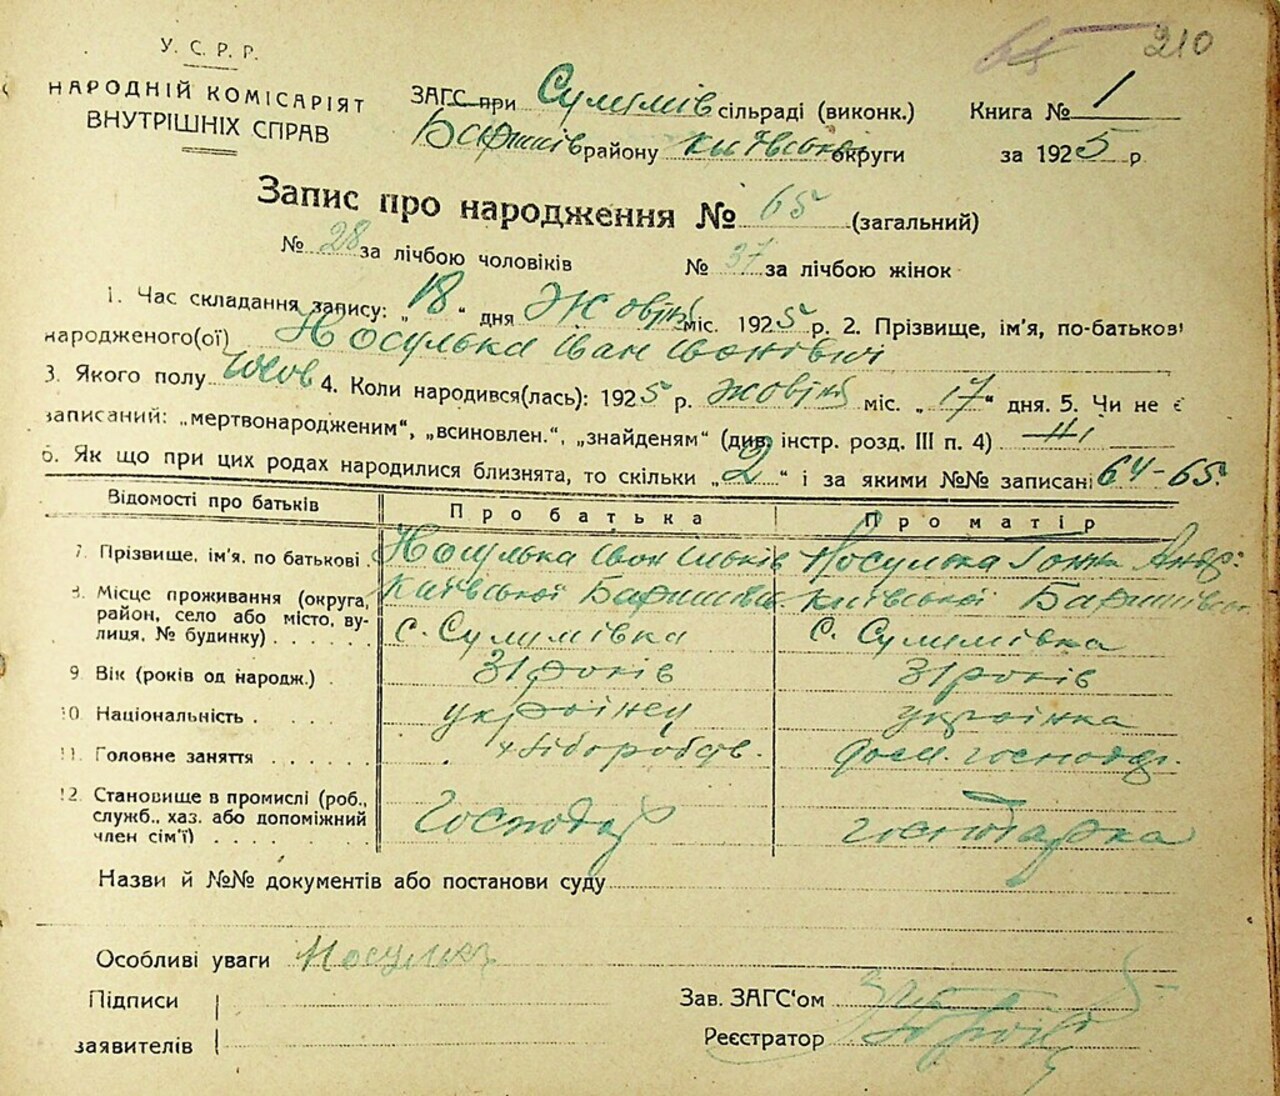 210
У. С. Р. Р.
НАРОДНІЙ КОМІСАРІЯТ
ВНУТРІШНІХ СПРАВ
ЗАГС при Сулимів сільраді (виконк.)
Баришів району Київської округи
Книга № 1
за 1925 р.
Запис про народження № 65 (загальний)
№ 28 за лічбою чоловіків № 37 за лічбою жінок
1. Час складання запису: „18“ дня Жовтн міс. 1925 р. 2. Прізвище, ім'я, по-батькові
народженого(ої) Носулька Іван Іванович
3. Якого полу чолов 4. Коли народився(лась): 1925 р. жовтн міс. „17“ дня. 5. Чи не є
записаний: „мертвонародженим“, „всиновлен.“, „знайденям“ (див. інстр. розд. III п. 4) Ні
6. Як що при цих родах народилися близнята, то скільки „2“ і за якими №№ записані 64-65.
Відомості про батьків Про батька Про матір
7. Прізвище, ім'я, по батькові . Носулька Іван Носулька Ганна Андр:
8. Місце проживання (округа, район, село або місто, вулиця, № будинку) . . . . . . Київської Баришівс. с. Сулимівка Київської Баришівськ. с. Сулимівка
9. Вік (років од народж.) . 31 років 31 років
10. Національність . . . . . українец українка
11. Головне заняття . . . . . . хліборобств. дом. господр.
12. Становище в промислі (роб., служб., хаз. або допоміжний член сім'ї) . . . . Господар господарка
Назви й №№ документів або постанови суду
Особливі уваги Носулька
Підписи
заявителів
Зав. ЗАГС'ом
Реєстратор